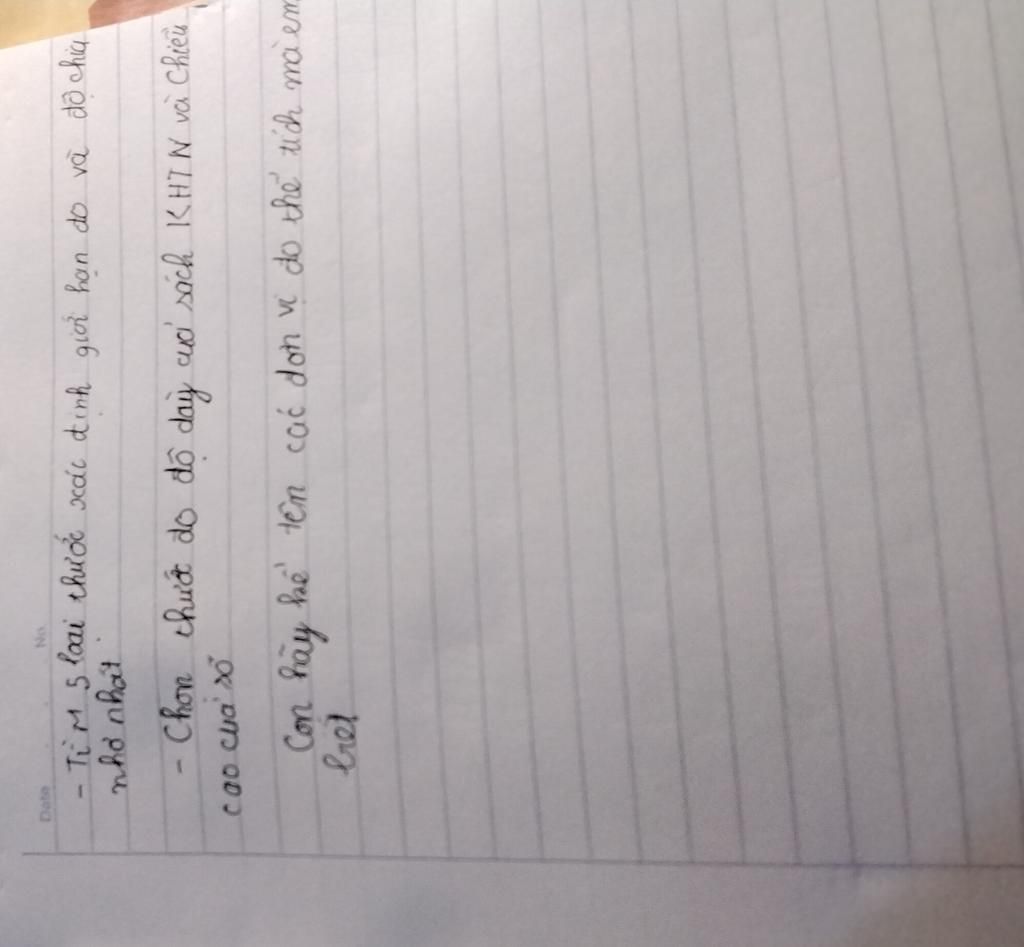 Date No.
- Tìm 5 loại thước xác định giới hạn đo và độ chia
nhỏ nhất
- Chọn thướt đo độ dày cuả sách KHTN và chiều
cao cuả sổ
Con hãy kể tên các đơn vị đo thể tích mà em
biết